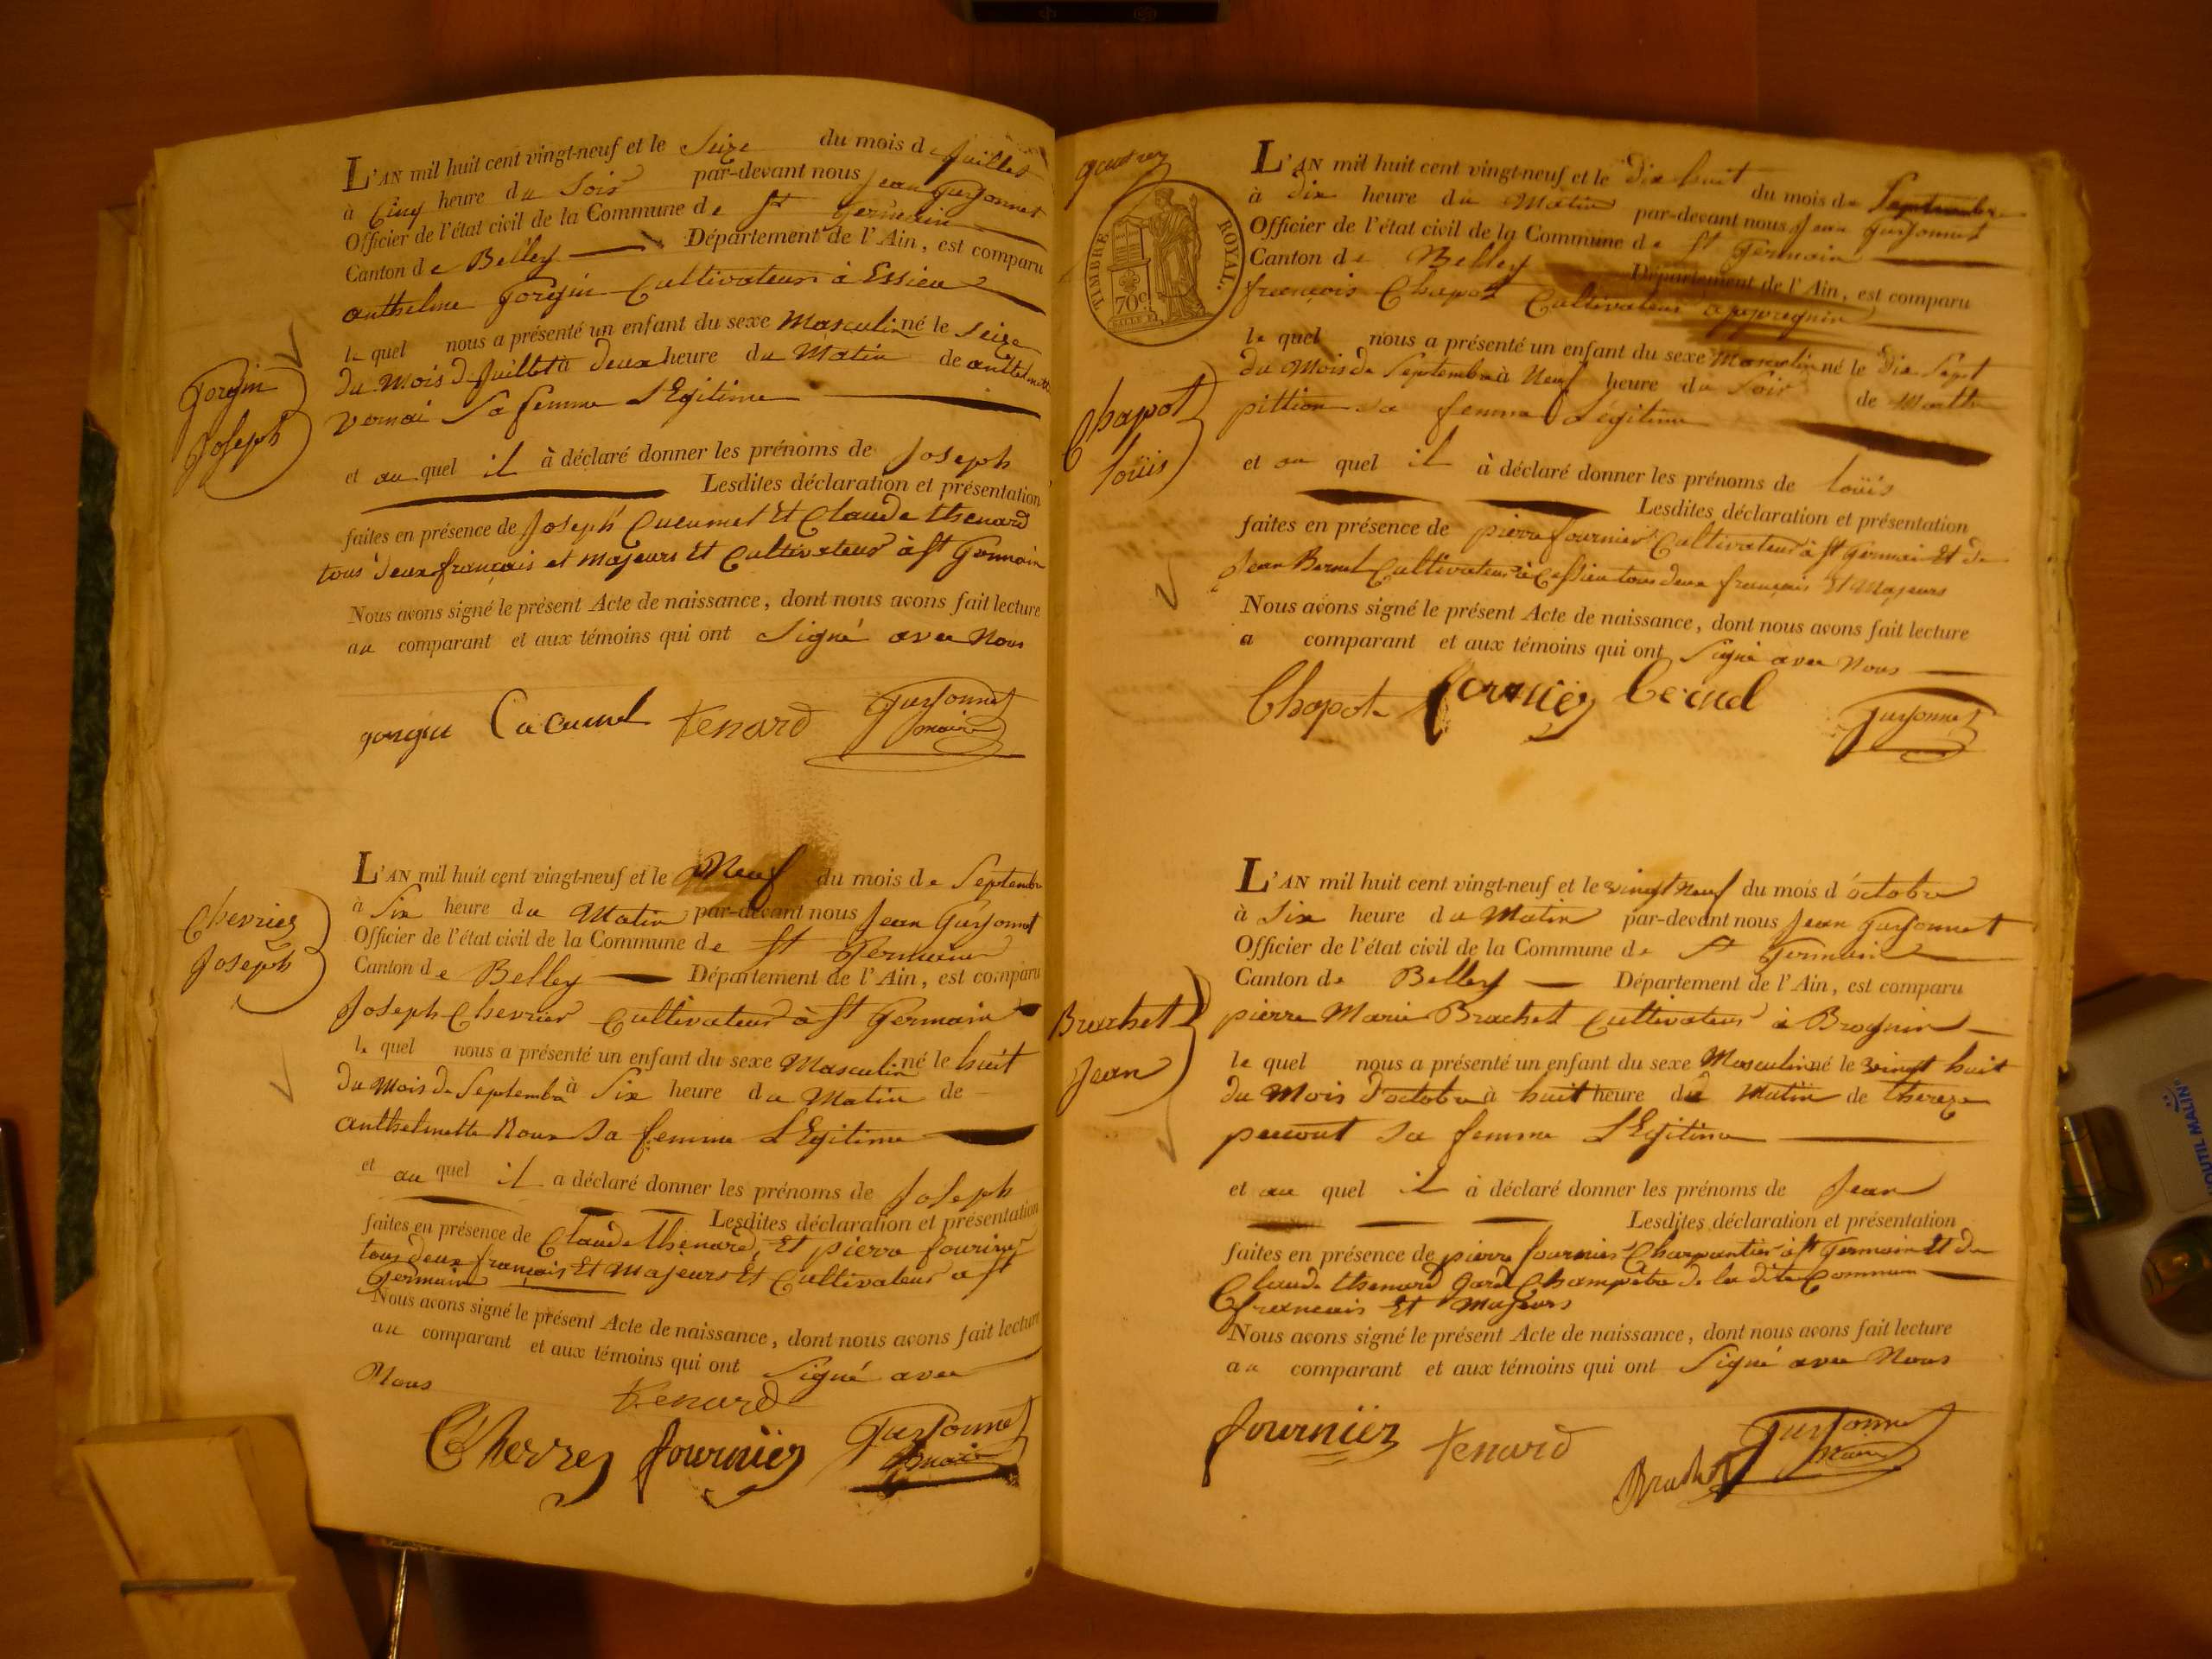 L'AN mil huit cent vingt-neuf et le Seize du mois de Juillet
à Cinq heure du Soir par-devant nous Jean Gussonnet
Officier de l'état civil de la Commune de St Germain
Canton de Belley Département de l'Ain, est comparu
anthelme Gorgin Cultivateur à Essieu
le quel nous a présenté un enfant du sexe Masculin né le Seize
du Mois de Juillet à deux heure du Matin de anthelmette
vernai Sa femme LEgitime
et au quel il à déclaré donner les prénoms de Joseph
Lesdites déclaration et présentation
faites en présence de Joseph Cucumet Et Claude thenard
tous deux français et majeurs Et Cultivateur à St Germain
Nous avons signé le présent Acte de naissance, dont nous avons fait lecture
au comparant et aux témoins qui ont Signé avec Nous
Gorgin
Joseph
gorgin Cucumel tenard Gussonnet
maire
L'AN mil huit cent vingt-neuf et le Neuf du mois de Septembre
à Six heure du Matin par-devant nous Jean Gussonnet
Officier de l'état civil de la Commune de St Germain
Canton de Belley Département de l'Ain, est comparu
Joseph Chevrier Cultivateur à St Germain
le quel nous a présenté un enfant du sexe Masculin né le huit
du Mois de Septembre à Six heure du Matin de
anthelmette Roux Sa femme LEgitime
et au quel il a déclaré donner les prénoms de Joseph
Lesdites déclaration et présentation
faites en présence de Claude thenard, Et pierre fourinier
tous deux français Et Majeurs Et Cultivateur a St
Germain
Nous avons signé le présent Acte de naissance, dont nous avons fait lecture
au comparant et aux témoins qui ont Signé avec
Nous
Chevrier
Joseph
tenard
fournier Gussonnet
maire
TIMBRE ROYAL.
70c
L'AN mil huit cent vingt-neuf et le Dix huit du mois de Septembre
à Dix heure du Matin par-devant nous Jean Gussonnet
Officier de l'état civil de la Commune de St Germain
Canton de Belley Département de l'Ain, est comparu
françois Chapot Cultivateur appregnin
le quel nous a présenté un enfant du sexe Masculin né le Dix Sept
du Mois de Septembre à Neuf heure du Soir de Marthe
pittion sa femme Légitime
et au quel il à déclaré donner les prénoms de loüis
Lesdites déclaration et présentation
faites en présence de pierre fournier Cultivateur à St Germain Et de
Jean Bernel Cultivateur à Cessieu tous deux français Et Majeurs
Nous avons signé le présent Acte de naissance, dont nous avons fait lecture
a comparant et aux témoins qui ont Signé avec Nous
Chapot
loüis
Chapot fornier bernel Gussonnet
L'AN mil huit cent vingt-neuf et le vingt neuf du mois d'octobre
à Six heure du Matin par-devant nous Jean Gussonnet
Officier de l'état civil de la Commune de St Germain
Canton de Belley Département de l'Ain, est comparu
pierre Marie Brachet Cultivateur à Brognin
le quel nous a présenté un enfant du sexe Masculin né le vingt huit
du Mois d'octobre à huit heure du Matin de thereze
sa femme LEgitime
et au quel il à déclaré donner les prénoms de Jean
Lesdites déclaration et présentation
faites en présence de pierre fournier Charpantier à St Germain Et de
Claude thenard Gard Champetre de la dite Commune
francais Et Majeurs
Nous avons signé le présent Acte de naissance, dont nous avons fait lecture
au comparant et aux témoins qui ont Signé avec Nous
Brachet
Jean
fournier tenard Gussonnet
maire
Brachet
OUTIL MALIN